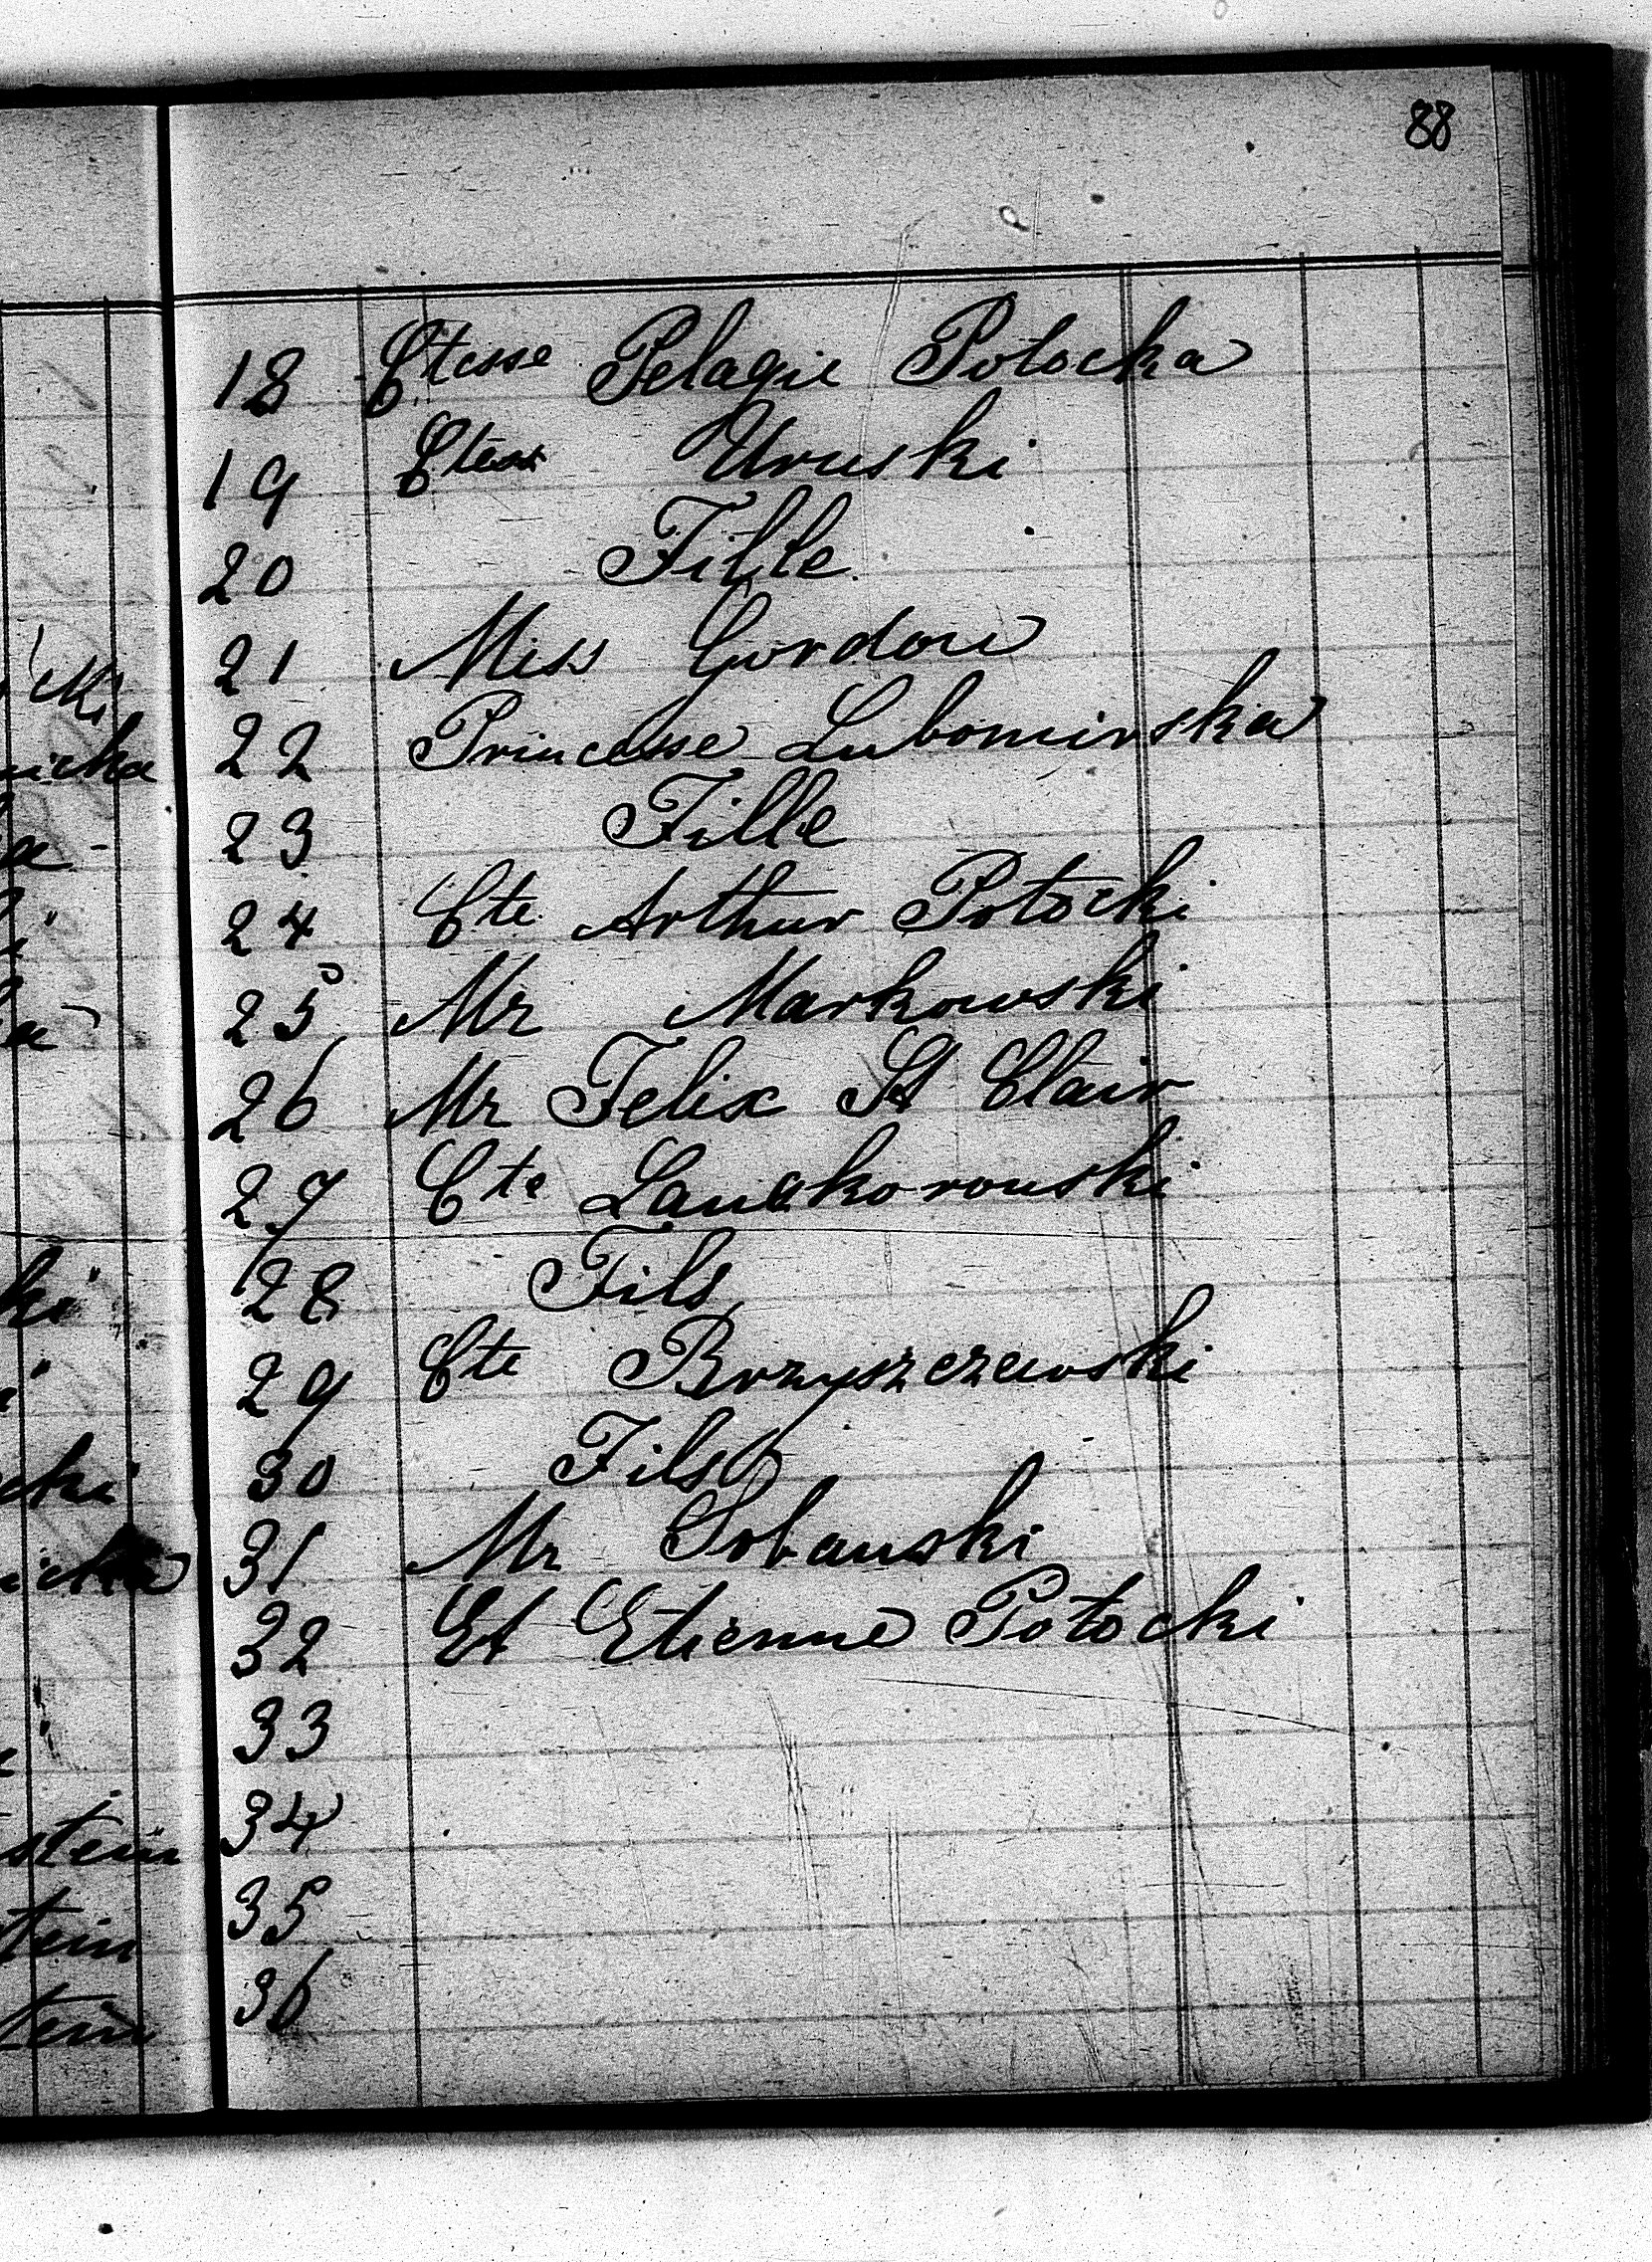 88
18 Ctesse Pelagie Potocka
19 Ctesse Uruski
20 Fille
21 Miss Gordon
22 Princesse Lubomirska
23 Fille
24 Cte Arthur Potocki
25 Mr Markowski
26 Mr Felix St Clair
27 Cte Lanckorouski
28 Fils
29 Cte Brzyszczewski
30 Fils
31 Mr Sobanski
32 Ct Etienne Potocki
33
34
35
36